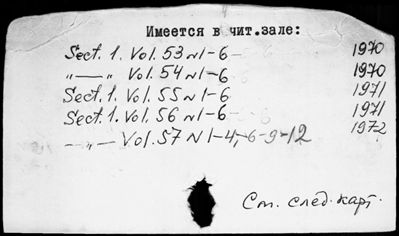 Имеется в чит.зале:
Sect. 1. Vol. 53 N 1-6 1970
-"- Vol. 54 N 1-6 1970
Sect. 1. Vol. 55 N 1-6 1971
Sect. 1. Vol. 56 N 1-6 1971
-"- Vol. 57 N 1-4, 6-9-12 1972
См. след. карт.